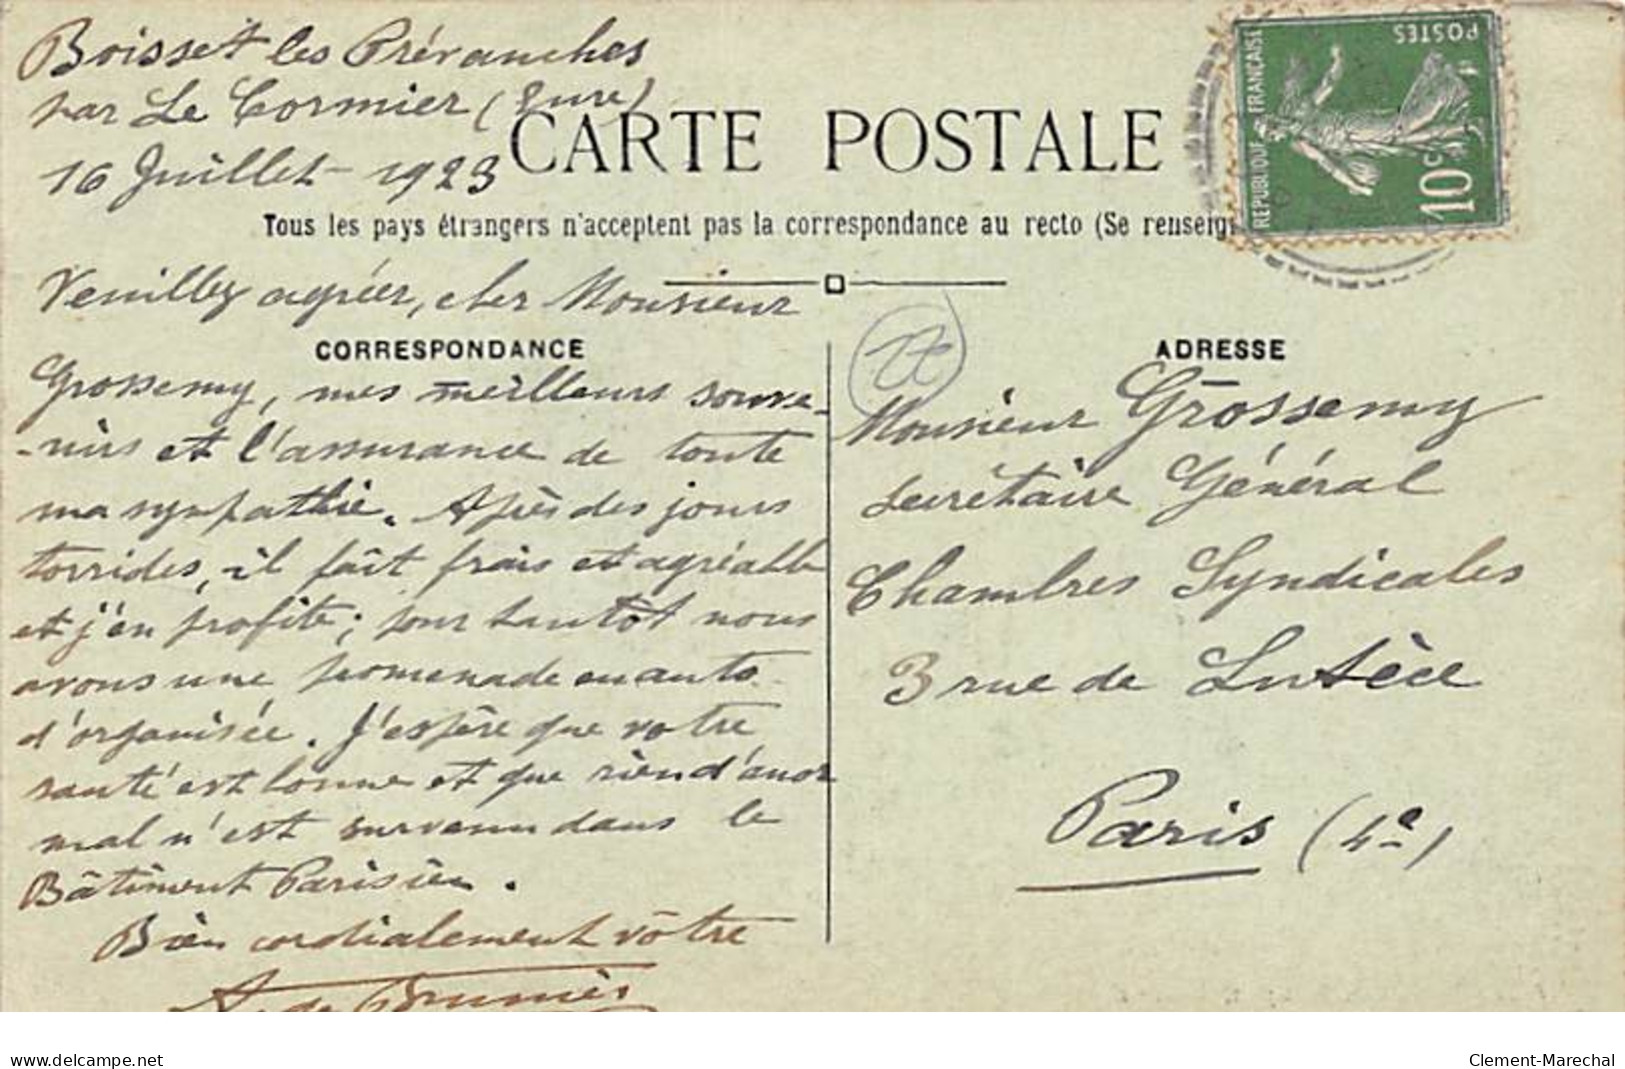 Boisset les Prévanches
par Le Cormier (Eure)
16 Juillet - 1923
CARTE POSTALE
Tous les pays étrangers n'acceptent pas la correspondance au recto (Se renseig
REPUBLIQUE FRANÇAISE
POSTES
10c
Veuillez agréer, cher Monsieur
CORRESPONDANCE
Grossemy, mes meilleurs souve-
-nirs et l'assurance de toute
ma sympathie. Après des jours
torrides, il fait frais et agréable
et j'en profite; pour tantôt nous
avons une promenade en auto
d'organisée. J'espère que votre
santé est bonne et que rien d'anor
mal n'est survenu dans le
Bâtiment Parisien.
Bien cordialement vôtre
A. de Brunier
ADRESSE
Monsieur Grossemy
Secrétaire Général
Chambres Syndicales
3 rue de Lutèce
Paris (4e)
www.delcampe.net
Clement-Marechal